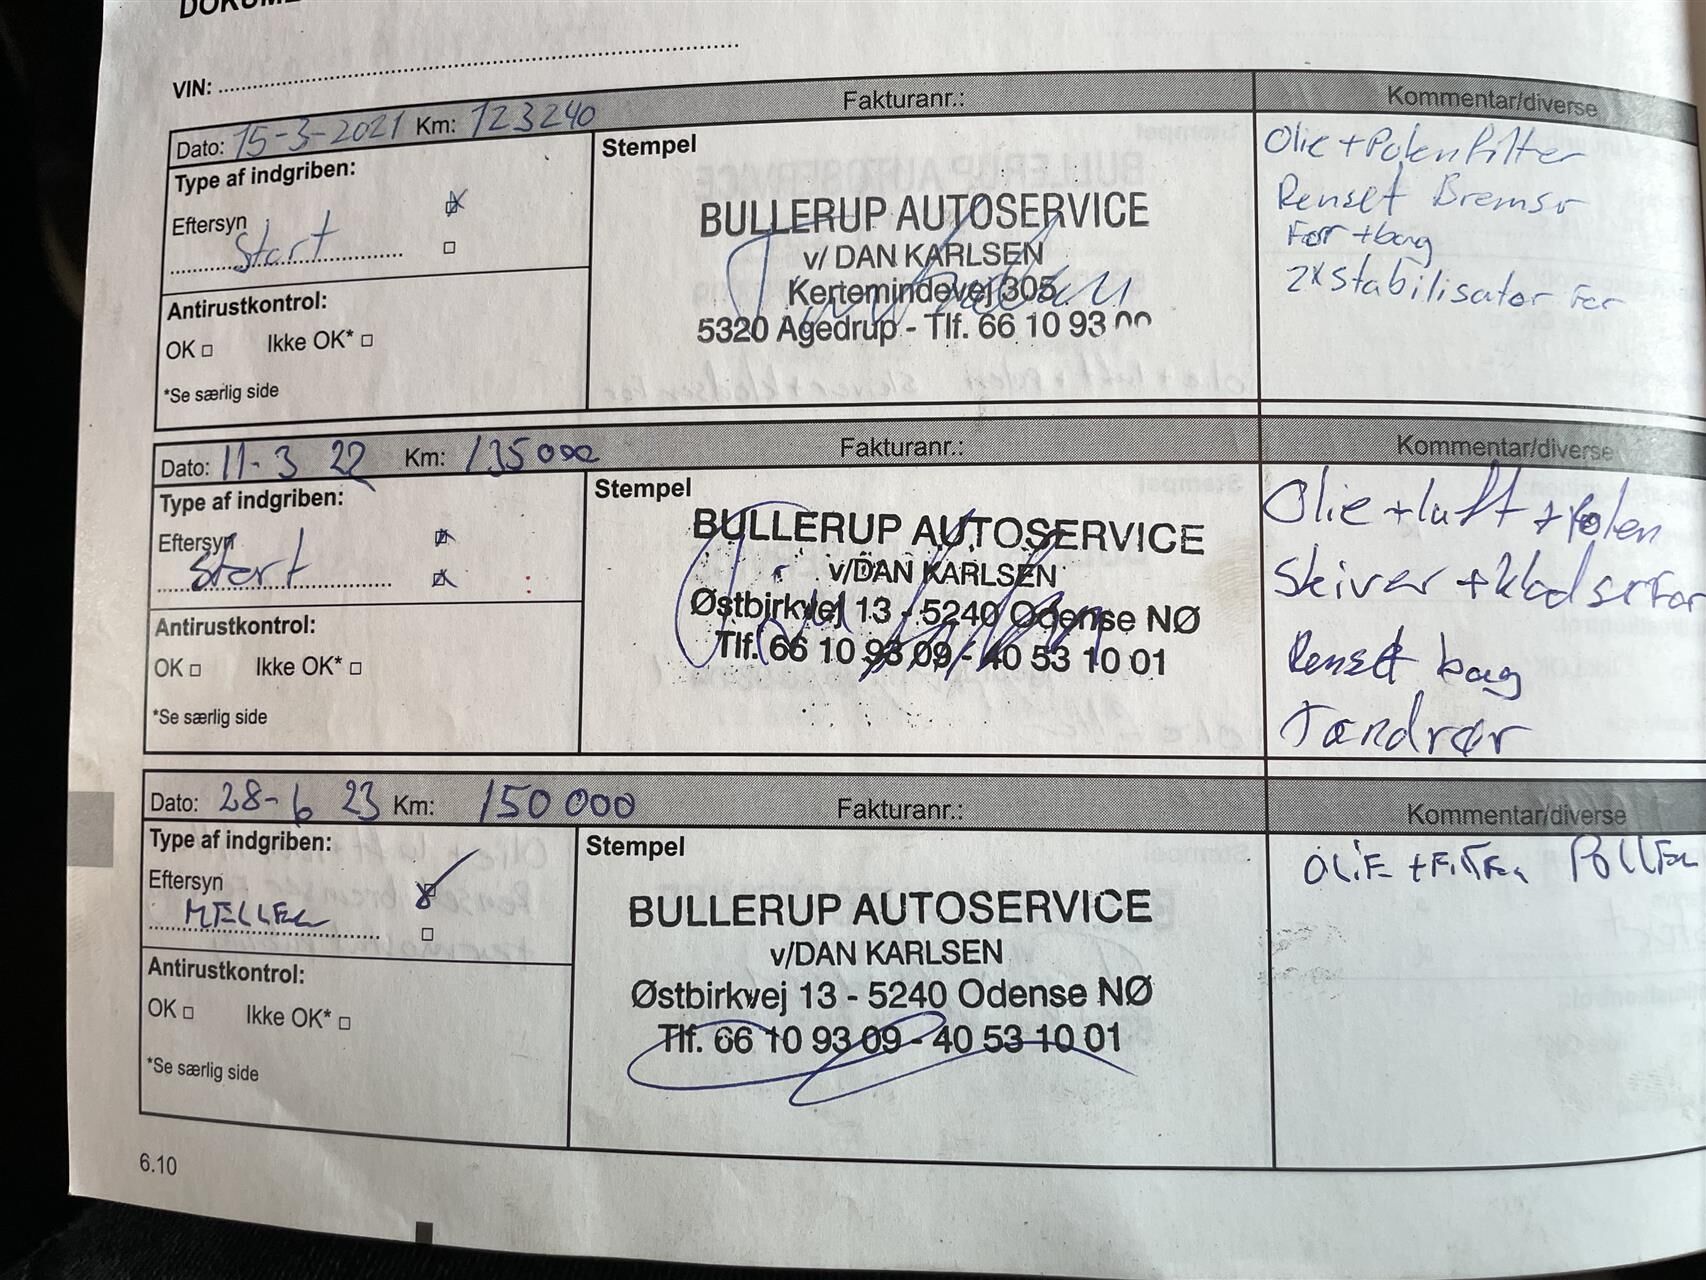 VIN:
Dato: 15-3-2021 Km: 123240 Fakturanr.: Kommentar/diverse
Type af indgriben:
Eftersyn
Start
Antirustkontrol:
OK Ikke OK*
*Se særlig side
Stempel
BULLERUP AUTOSERVICE
v/ DAN KARLSEN
Kertemindevej 305
5320 Agedrup - Tlf. 66 10 93
Olie + Polenfilter
Renset Bremser
For + bag
2x stabilisator For
Dato: 11-3 22 Km: 135000 Fakturanr.: Kommentar/diverse
Type af indgriben:
Eftersyn
Stort
Antirustkontrol:
OK Ikke OK*
*Se særlig side
Stempel
BULLERUP AUTOSERVICE
v/DAN KARLSEN
Østbirkvej 13 - 5240 Odense NØ
Tlf. 66 10 93 09 - 40 53 10 01
Olie + luft + Polen
Skiver + klodser For
Renset bag
Tændrør
Dato: 28-6 23 Km: 150 000 Fakturanr.: Kommentar/diverse
Type af indgriben:
Eftersyn
MELLEM
Antirustkontrol:
OK Ikke OK*
*Se særlig side
Stempel
BULLERUP AUTOSERVICE
v/DAN KARLSEN
Østbirkvej 13 - 5240 Odense NØ
Tlf. 66 10 93 09 - 40 53 10 01
OLIE + FILTER POLLEN
6.10